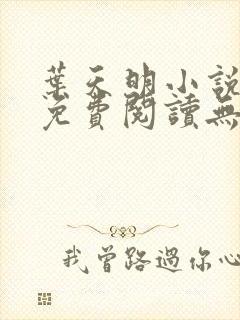 葉天明小說
免費閱讀無
我曾路過你心